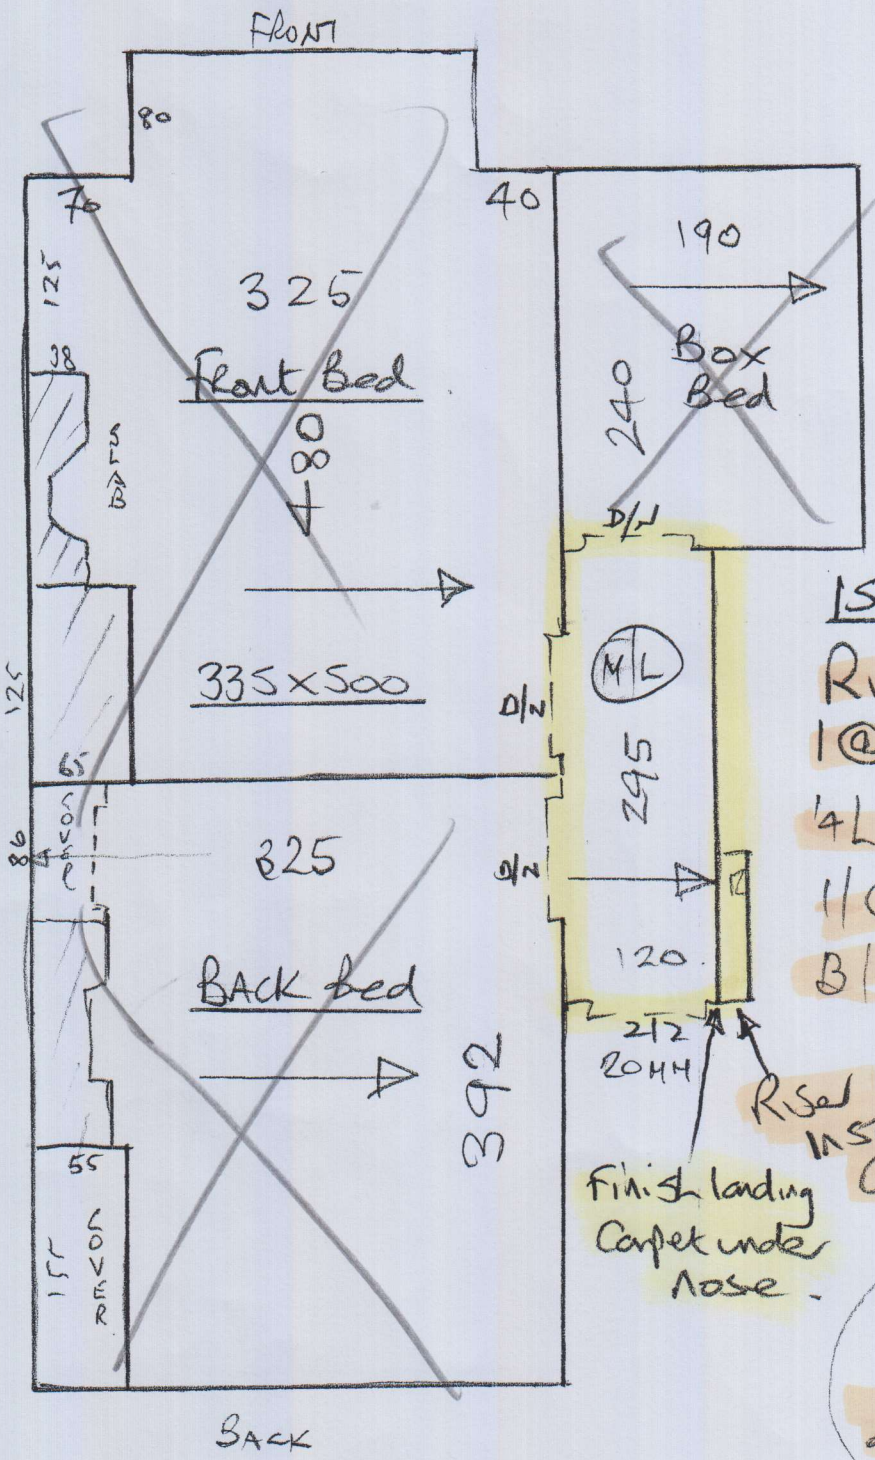 FRONT
80
70
40
125
325
190
38
Front Bed
Box
Bed
240
SLAB
480
D/N
335 x 500
M/L
D/N
125
295
65
COVER
86
325
D/N
120
BACK bed
2T2
20MM
392
Riser
55
155
COVER
Finish landing
Carpet under
nose.
BACK
1@